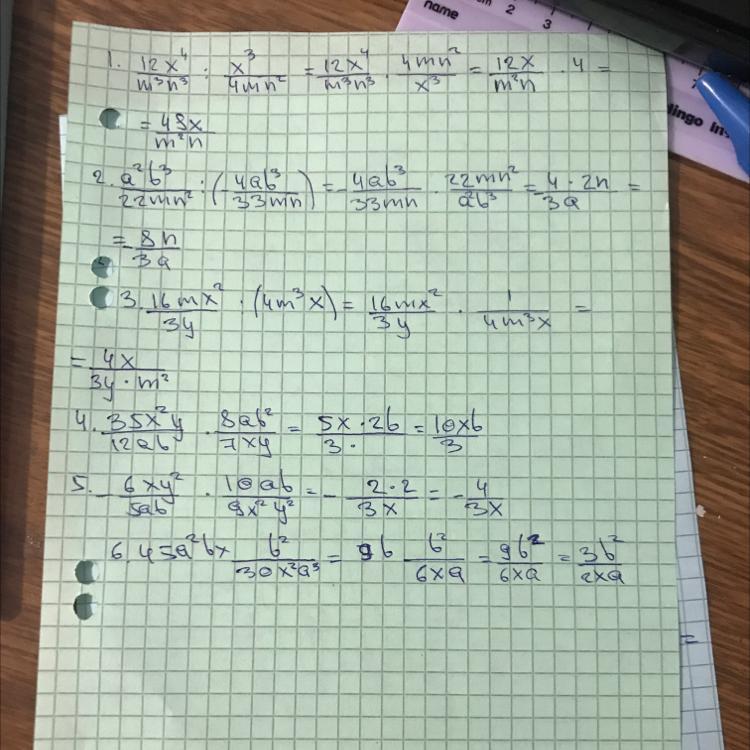 name
cm 2
3
7
lingo in
1. 12x⁴/m³n³ : x³/4mn² = 12x⁴/m³n³ · 4mn²/x³ = 12x/m²n · 4 =
= 48x/m²n
2. a²b³/22mn² : (4ab³/33mn) = -4ab³/33mn · 22mn²/a²b³ = 4 · 2n/3a =
= 8n/3a
3. 16mx²/3y · (4m³x) = 16mx²/3y · 1/4m³x =
= 4x/3y · m²
4. 35x²y/12ab · 8ab²/7xy = 5x · 2b/3· = 10xb/3
5. - 6xy²/5ab · 10ab/9x²y² = - 2 · 2/3x = - 4/3x
6. 45a²bx b²/30x²a³ = 9b b²/6xa = 9b²/6xa = 3b²/2xa
=